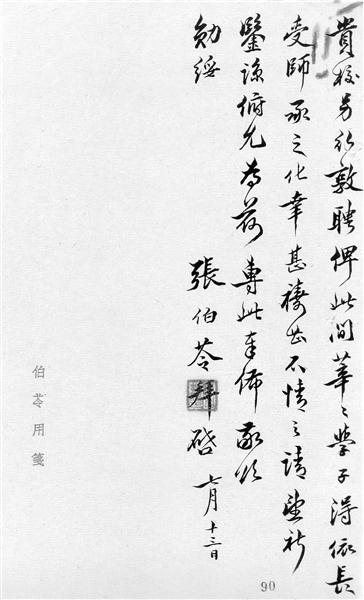 貴校另行敦聘俾此間莘〻學子得依長
受師承之化幸甚禱甚不情之請望祈
鑒諒俯允為荷 專此奉佈敬頌
勛綏
張伯苓拜啓 七月十三日
伯苓用箋
90